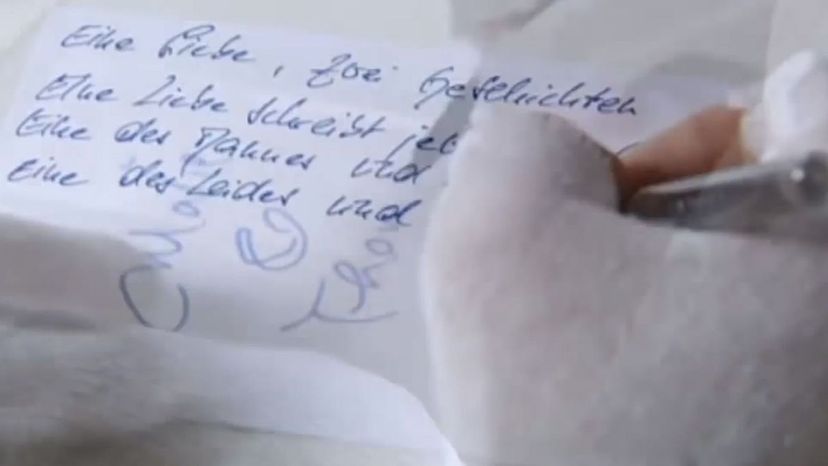 Eine Liebe, zwei Geschichten
Eine Liebe schreibt
Eine des Mannes und
Eine des Leides und